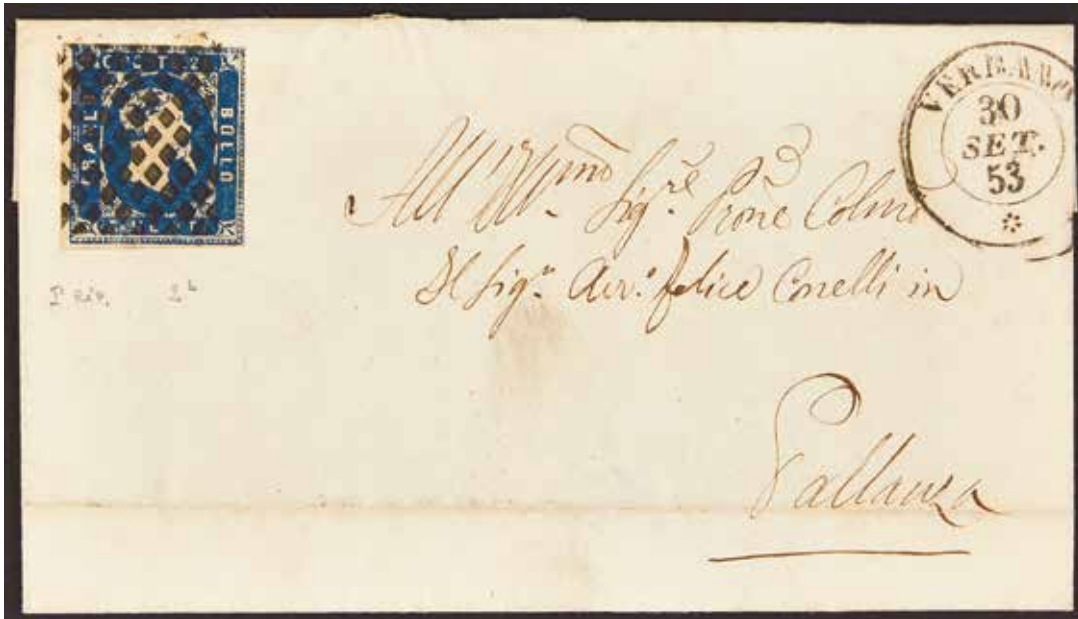 BOLLO
30
SET.
53
All' Ill.mo Sig.re Prone Colmo
Il Sig.r Avv.o felice Conelli in
Pallanza